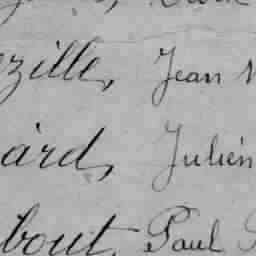 zille, Jean
ard, Julien
bout, Paul